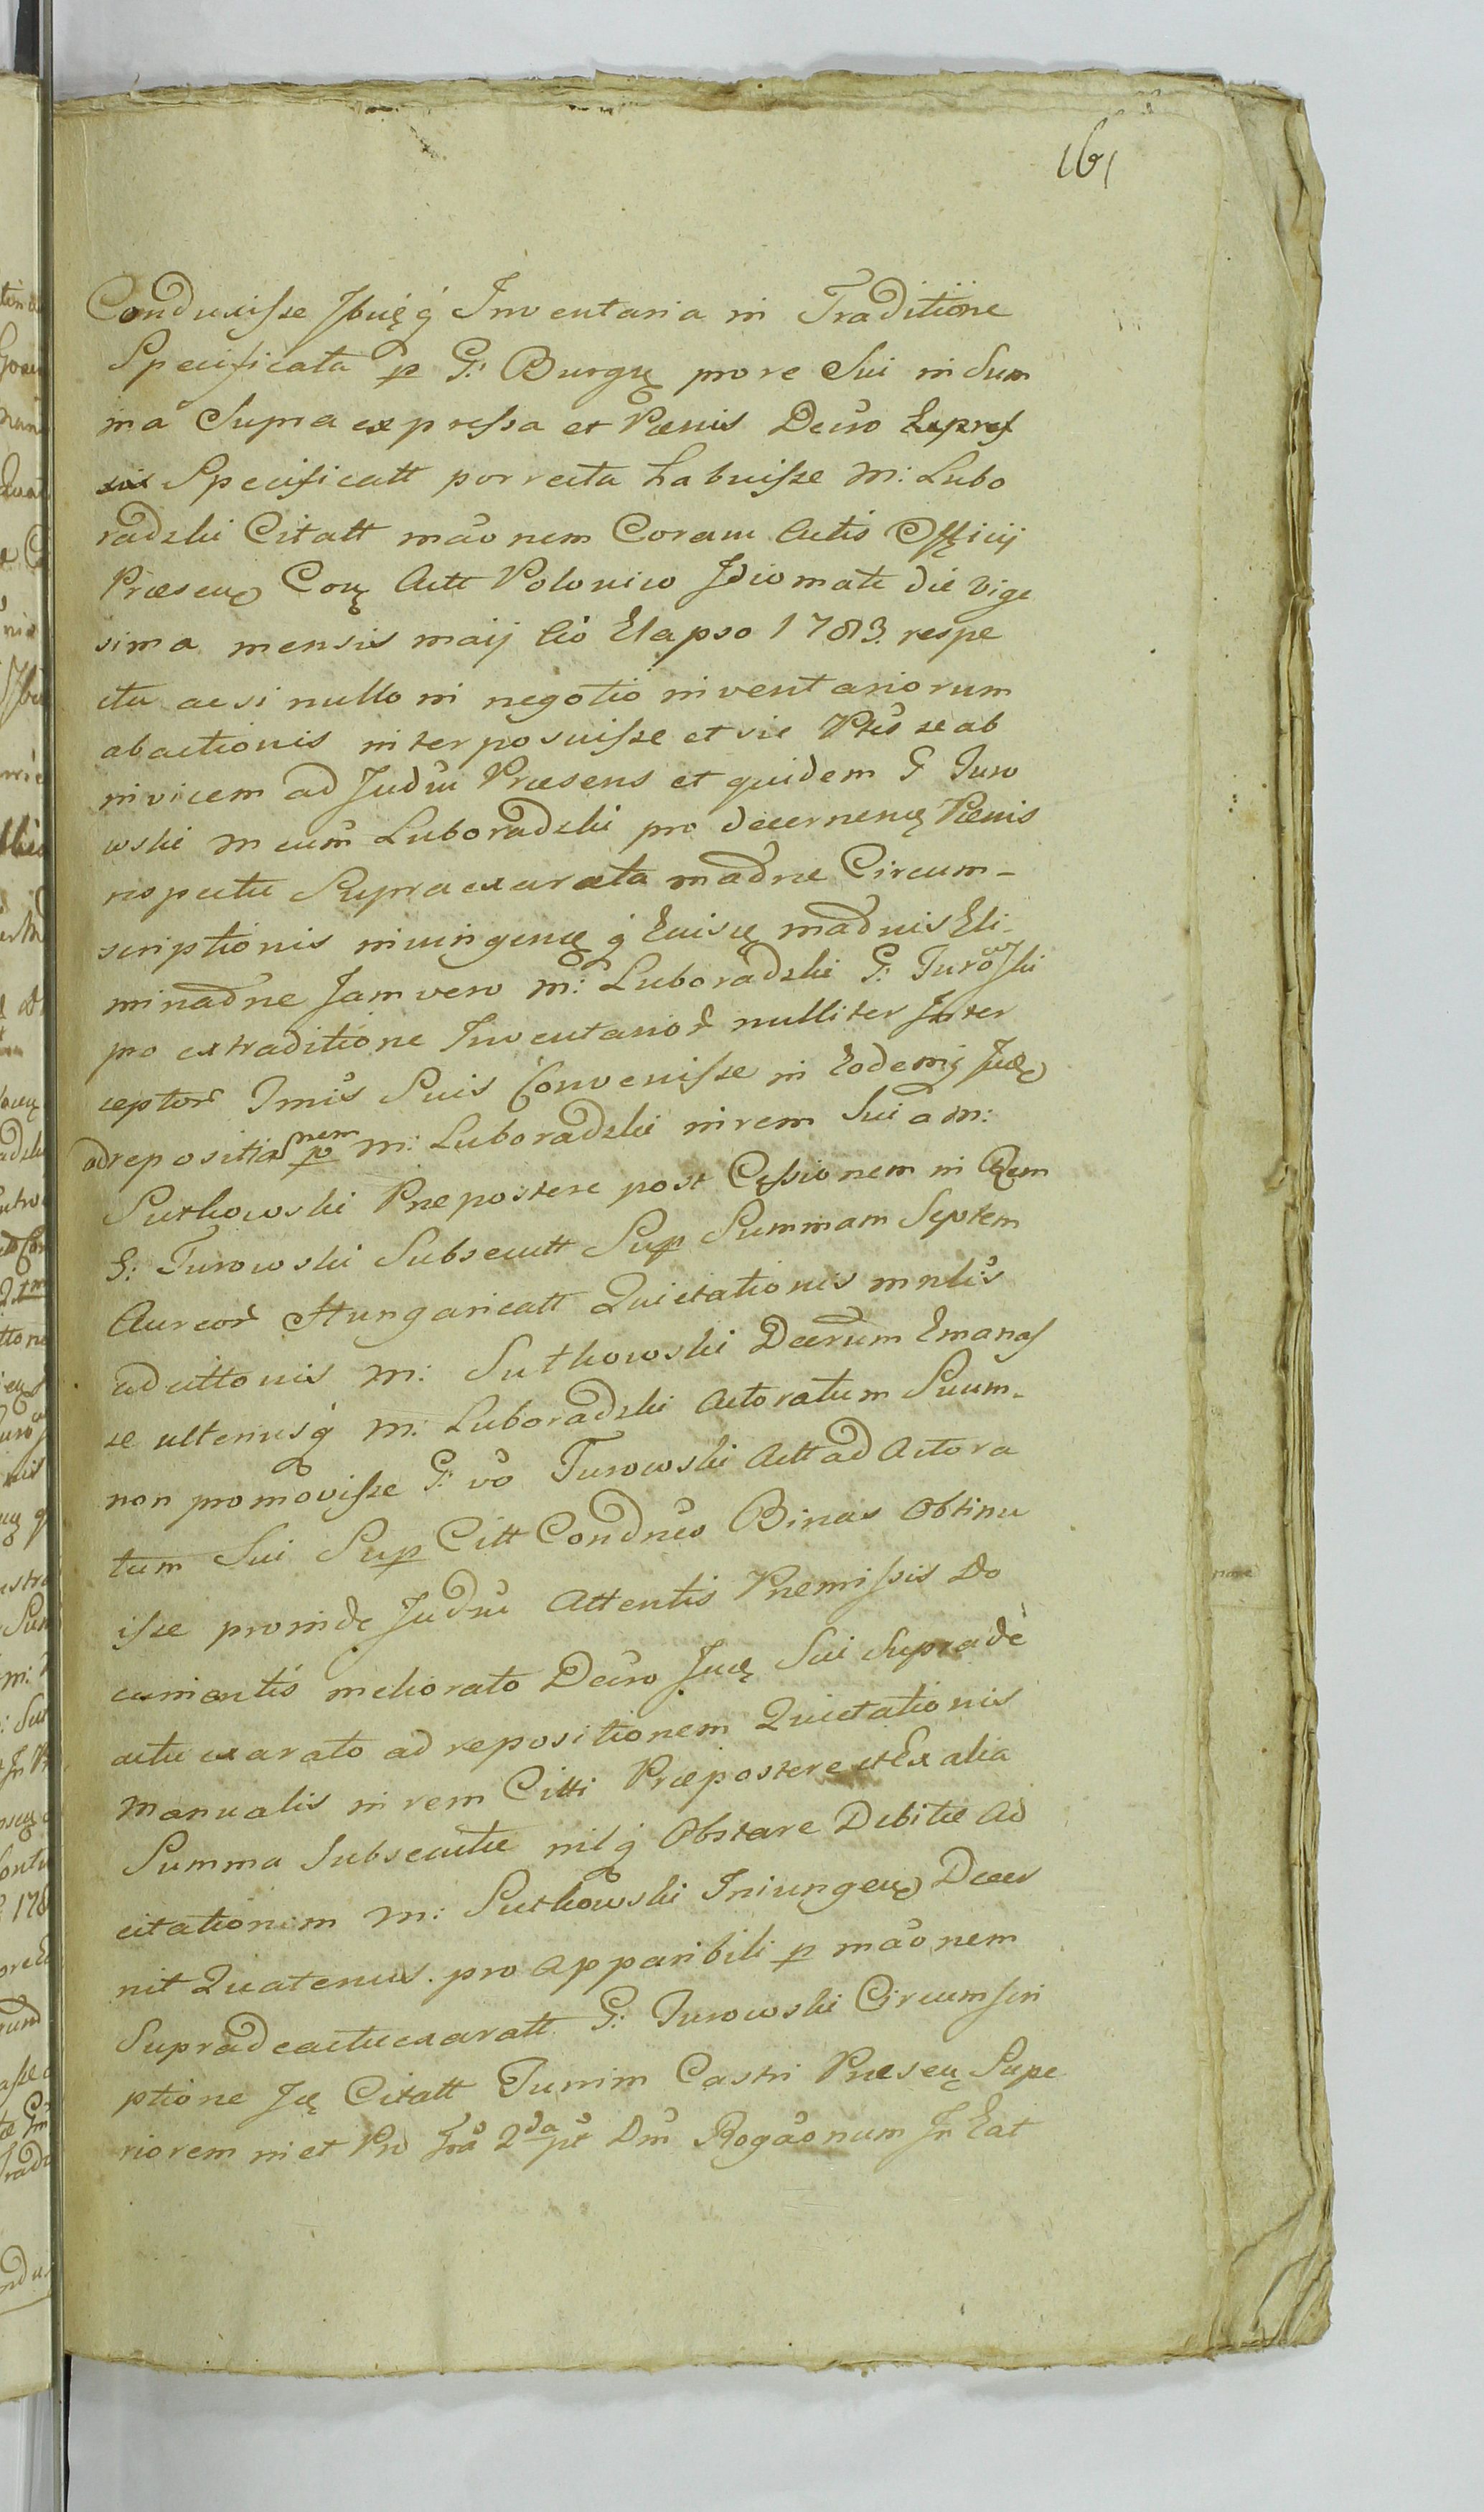 161
Conduxisse Ibuęq Inventaria in Traditione
Specificata p G: Burgę pro re Sui in Sum
ma Supra expressa et Pænis Decro Expres
sis Specificatt porrecta habuisse M: Lubo
radzki Citatt mãonem Coram Actis Officij
Præsenę Conę Actt Polonico Idiomate die vige
sima mensis maij Ao Elapso 1783 respe
ctu acsi nullo in negotio inventariorum
abactionis interposuisse et sic Ptes se ab
invicem ad Judm Præsens et quidem G Turo
wski M cum Luboradzki pro decernenę Pænis
respectu Supra exarata madne Circum-
scriptionis iniungenę q Euisę madnis Eli-
minadne Jam vero M: Luboradzki G: Turowski
pro extraditione Inventarior nulliter Inter
ceptor Tmis Suis Convenisse in Eodemq Judę
ad repositionem p M: Luboradzki in rem Sui a M:
Sutkowski Præpostere post Cessionem in Rem
G: Turowski Subsecutt Sup Summam Septem
Aureor Hungaricatt Quietationis mnlis
ad cittonis M: Sutkowski Decrum Emanas
se ulteriusq M: Luboradzki Actoratum Suum-
non promovisse G: vo Turowski Actt ad Actora
tum Sui Sup Citt Condnes Binas Obtinu
isse proinde Judm Attentis Præmissis Do
cumentis meliorato Decro Judę Sui Supra de
actu exarato ad repositionem Quietationis
Manualis in rem Citti Præpostere et Ex alia
Summa Subsecutæ nilq Obstare Debitæ Ad
citationem M: Sutkowski Iniungenę Decer
nit Quatenus pro apparibili p mãonem
Supra de actu exaratt G: Turowski Circumscri
ptione Ję Citatt Turrim Castri Præsenę Supe
riorem in et Pro fra 2da pt Dm Rogãonum In Eat